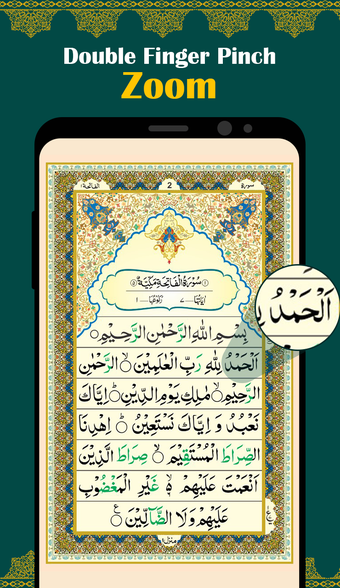 Double Finger Pinch
Zoom
الفاتحة ١
2
سورة
سُوْرَةُ الْفَاتِحَةِ مَكِّيَّةٌ
اٰيَاتُهَا ٧ رُكُوْعُهَا ١
بِسْمِ اللّٰهِ الرَّحْمٰنِ الرَّحِيْمِ
اَلْحَمْدُ لِلّٰهِ رَبِّ الْعٰلَمِيْنَ ۙ الرَّحْمٰنِ
الرَّحِيْمِ ۙ مٰلِكِ يَوْمِ الدِّيْنِ ؕ اِيَّاكَ
نَعْبُدُ وَ اِيَّاكَ نَسْتَعِيْنُ ؕ اِهْدِنَا
الصِّرَاطَ الْمُسْتَقِيْمَ ۙ صِرَاطَ الَّذِيْنَ
اَنْعَمْتَ عَلَيْهِمْ ۙ۬ غَيْرِ الْمَغْضُوْبِ
عَلَيْهِمْ وَلَا الضَّآلِّيْنَ ع
منزل ١
اَلْحَمْدُ